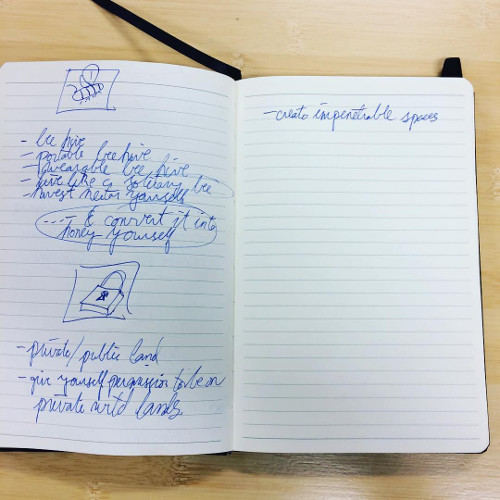 - bee hive
- portable beehive
- wearable bee hive
- live like a solitary bee
- harvest nectar yourself
... & convert it into
honey yourself
- private/public land
- give yourself permission to be on
private lands
- create impenetrable spaces